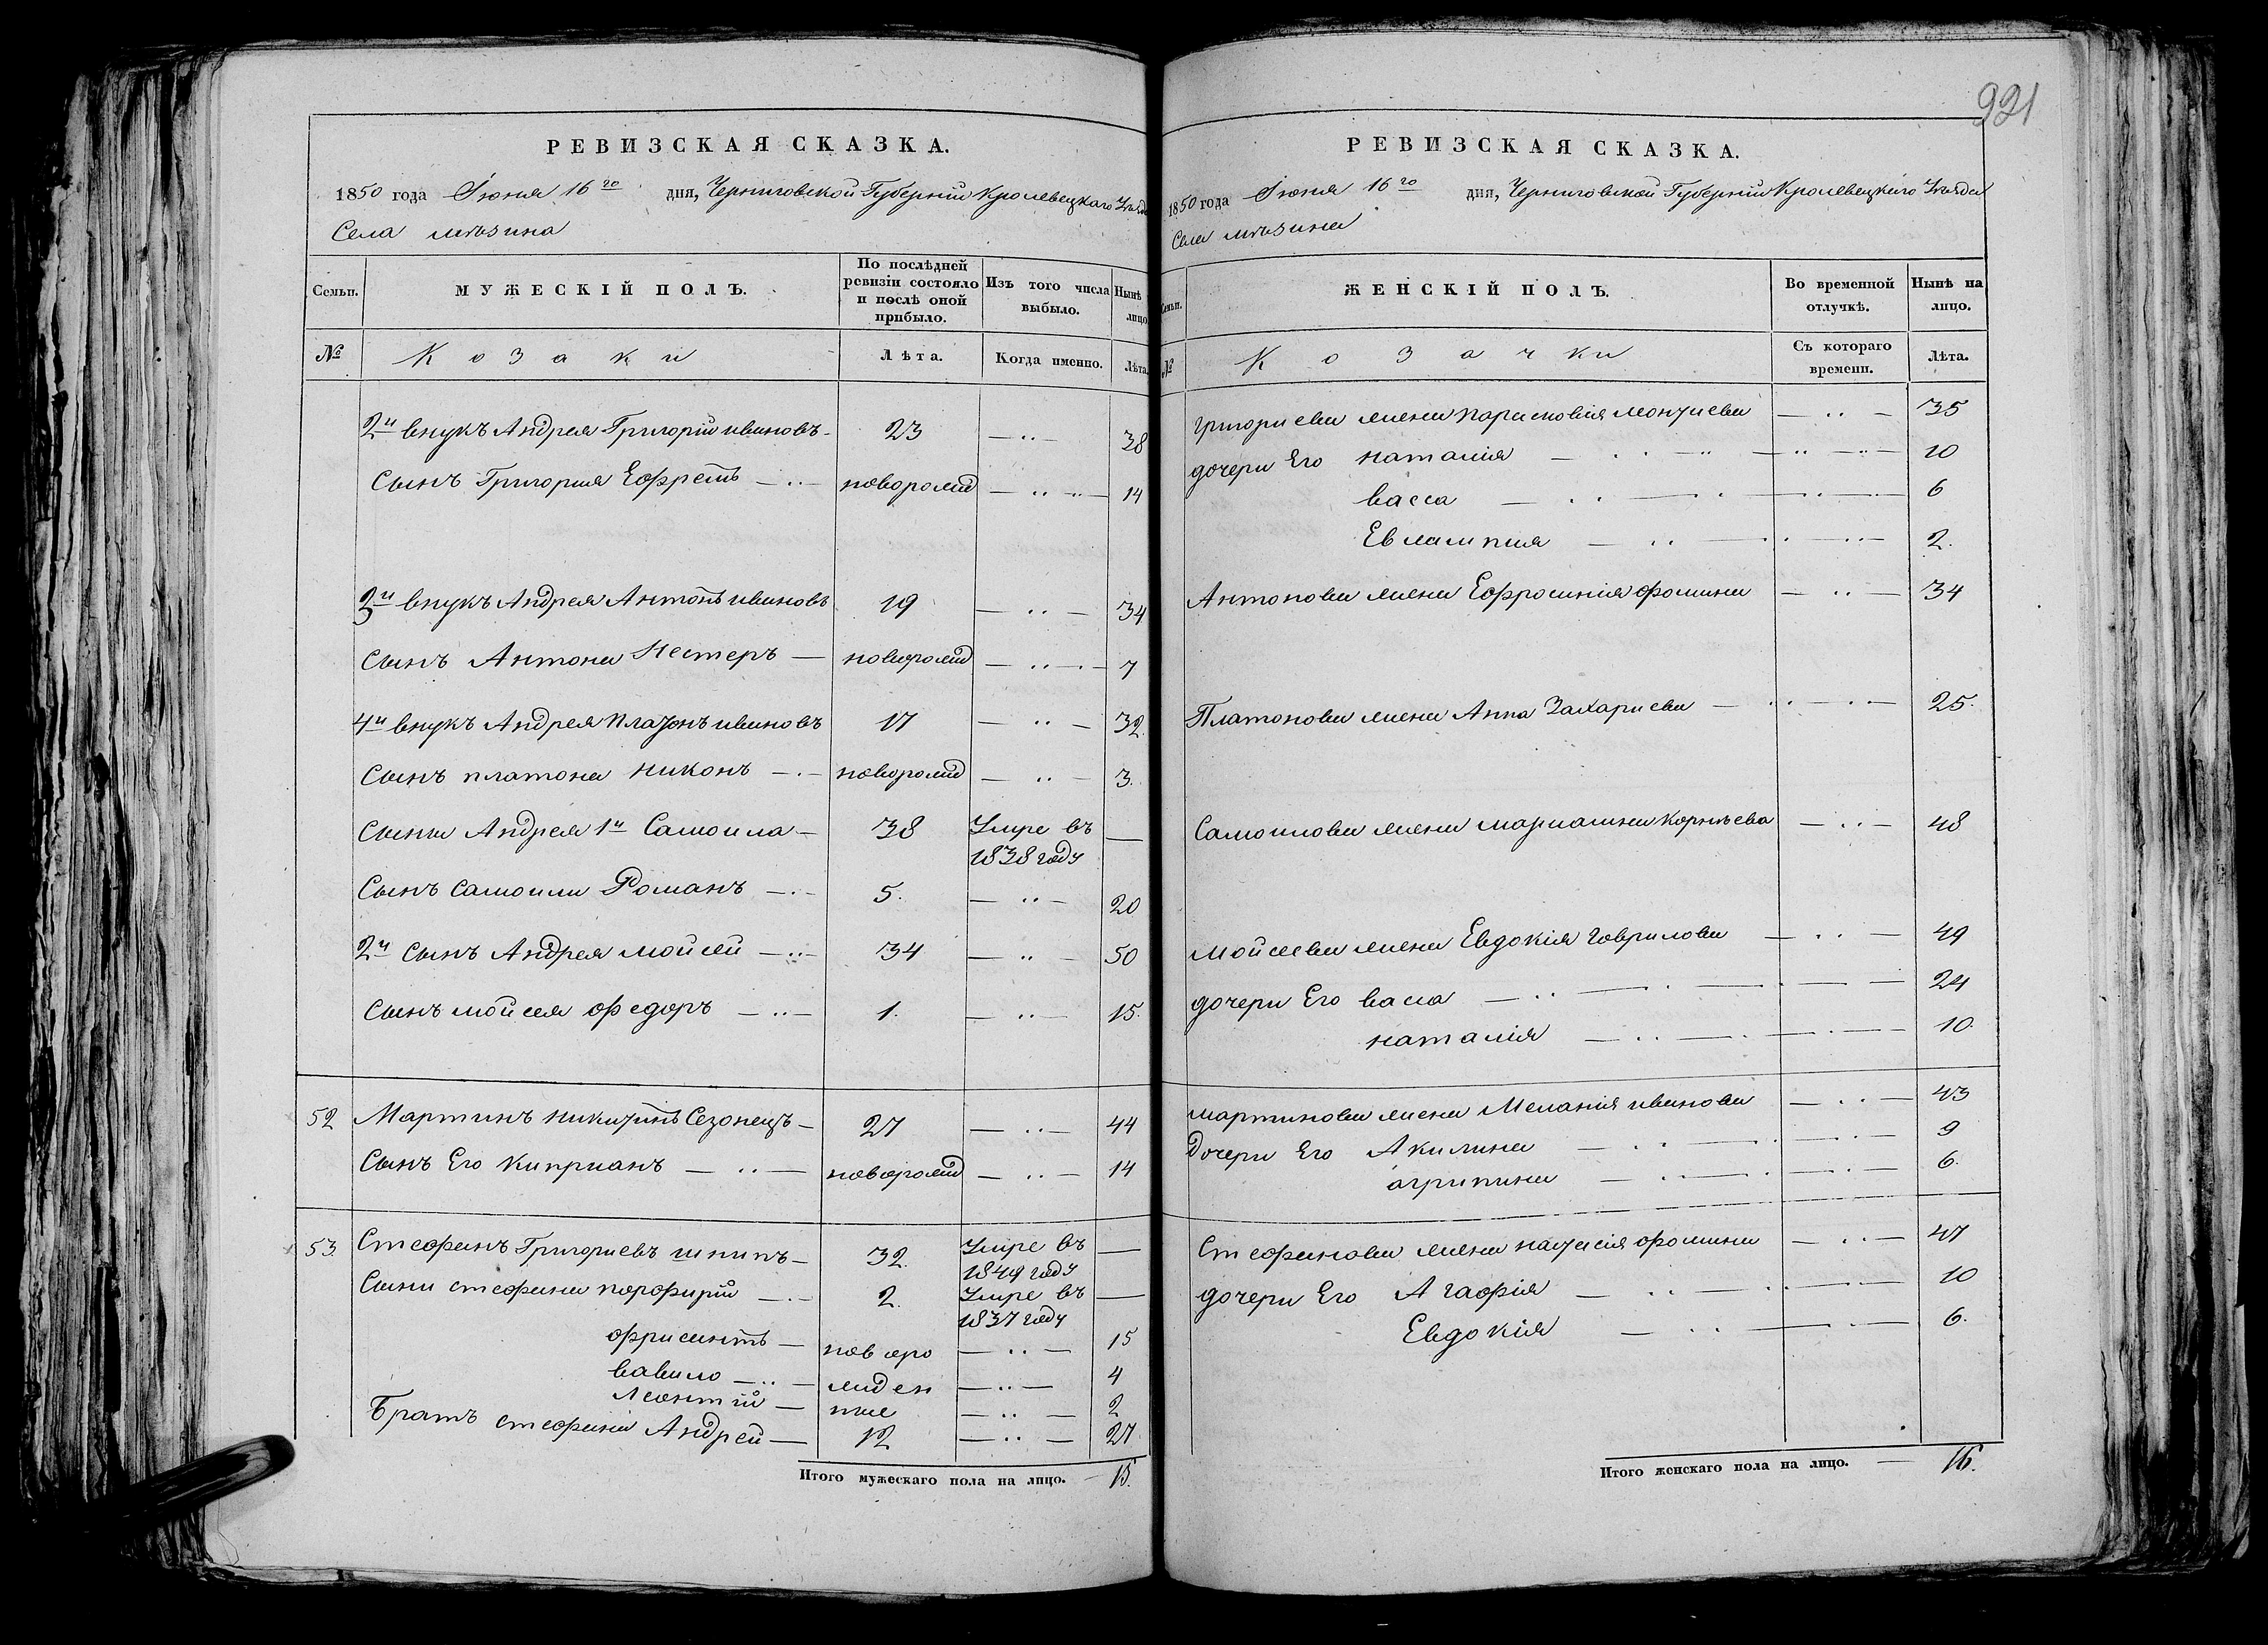 РЕВИЗСКАЯ СКАЗКА.
1850 года Іюня 16го дня, Черниговской Губерніи Кролевецкаго Уѣзда
Села мѣзина
Семьи.
МУЖЕСКІЙ ПОЛЪ.
По послѣдней
ревизіи состояло
и послѣ оной
прибыло.
Изъ того числа
выбыло.
Нынѣ
лицо
№
Козаки
Лѣта.
Когда именно.
Лѣта.
2й внукъ Андрея Григорій ивановъ 23 — 38
Сынъ Григорія Ефремъ — новорожд — 14
3й внукъ Андрея Антонъ ивановъ 19 — 34
Сынъ Антона Нестеръ — новорожд — 7
4й внукъ Андрея Платонъ ивановъ 17 — 32.
Сынъ платона никонъ — новорожд — 3.
Сыны Андрея 1й Самоила — 38 Умре въ —
1838 году
Сынъ самоили Романъ — 5. — 20
2й Сынъ Андрея мойсей — 34 — 50
Сынъ мойсея федоръ — 1. — 15.
52 Мартинъ никитинъ Сезонецъ — 27 — 44
Сынъ Его киприанъ — новорожд — 14
53 Стефанъ Григориевъ шпипъ — 32. Умре въ —
1849 году
Сыни стефана порфирій — 2. Умре въ —
1837 году
— новоро — 15
вавило — жден — 4
Леонтій — ные — 2
Братъ стефана Андрей — 12 — 27
Итого мужескаго пола на лицо. — 15.
921
РЕВИЗСКАЯ СКАЗКА.
1850 года Іюня 16го дня, Черниговской Губерніи Кролевецкаго Уѣзда
Села мѣзина
Семьи.
ЖЕНСКІЙ ПОЛЪ.
Во временной
отлучкѣ.
Нынѣ на
лицо.
№
Козачки
Съ котораго
времени.
Лѣта.
григориева жена парасковія — 35
дочери Его наталія — 10
васса — 6
Евлампия — 2.
Антонова жена Ефросинія фомина — 34
Платонова жена Анна Захариева — 25.
Самоилова жена мариамна корнѣева — 48
мойсеева жена Евдокія гаврилова — 49
дочери Его васса — 24
наталія — 10.
мартинова жена Меланія иванова — 43
дочери Его Акилина — 9
агрипина — 6.
Стефанова жена настасія фомина — 47
дочери Его Агафія — 10
Евдокія — 6.
Итого женскаго пола на лицо. — 16.